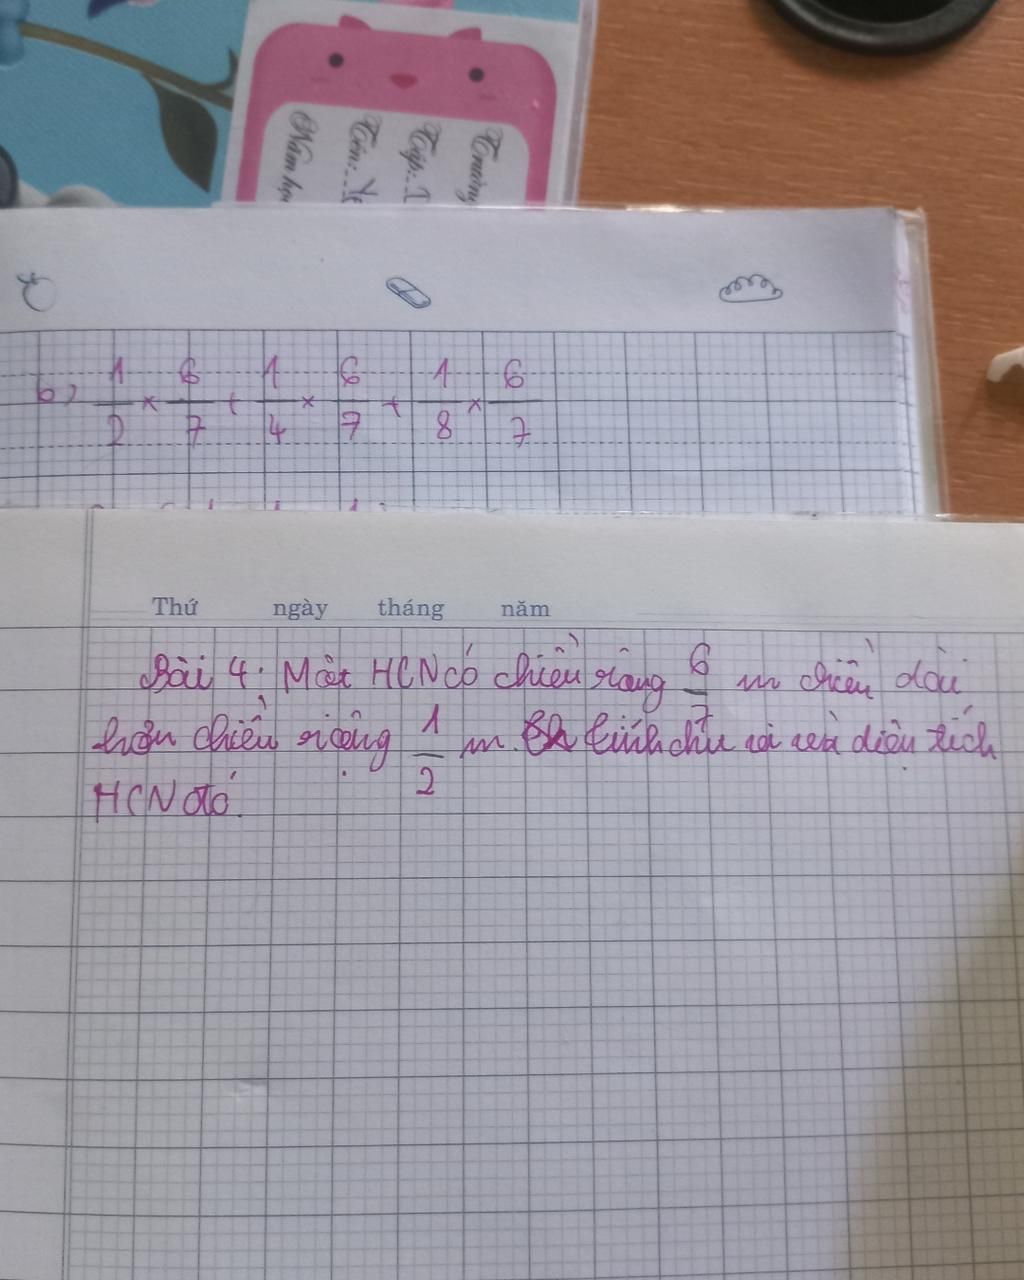 Trường
Lớp:
Tên:
Năm học
b) 1/2 × 6/7 + 1/4 × 6/7 + 1/8 × 6/7
Thứ ngày tháng năm
Bài 4: Một HCN có chiều rộng 6/7 m chiều dài
hơn chiều rộng 1/2 m. tính chu vi và diện tích
HCN đó.